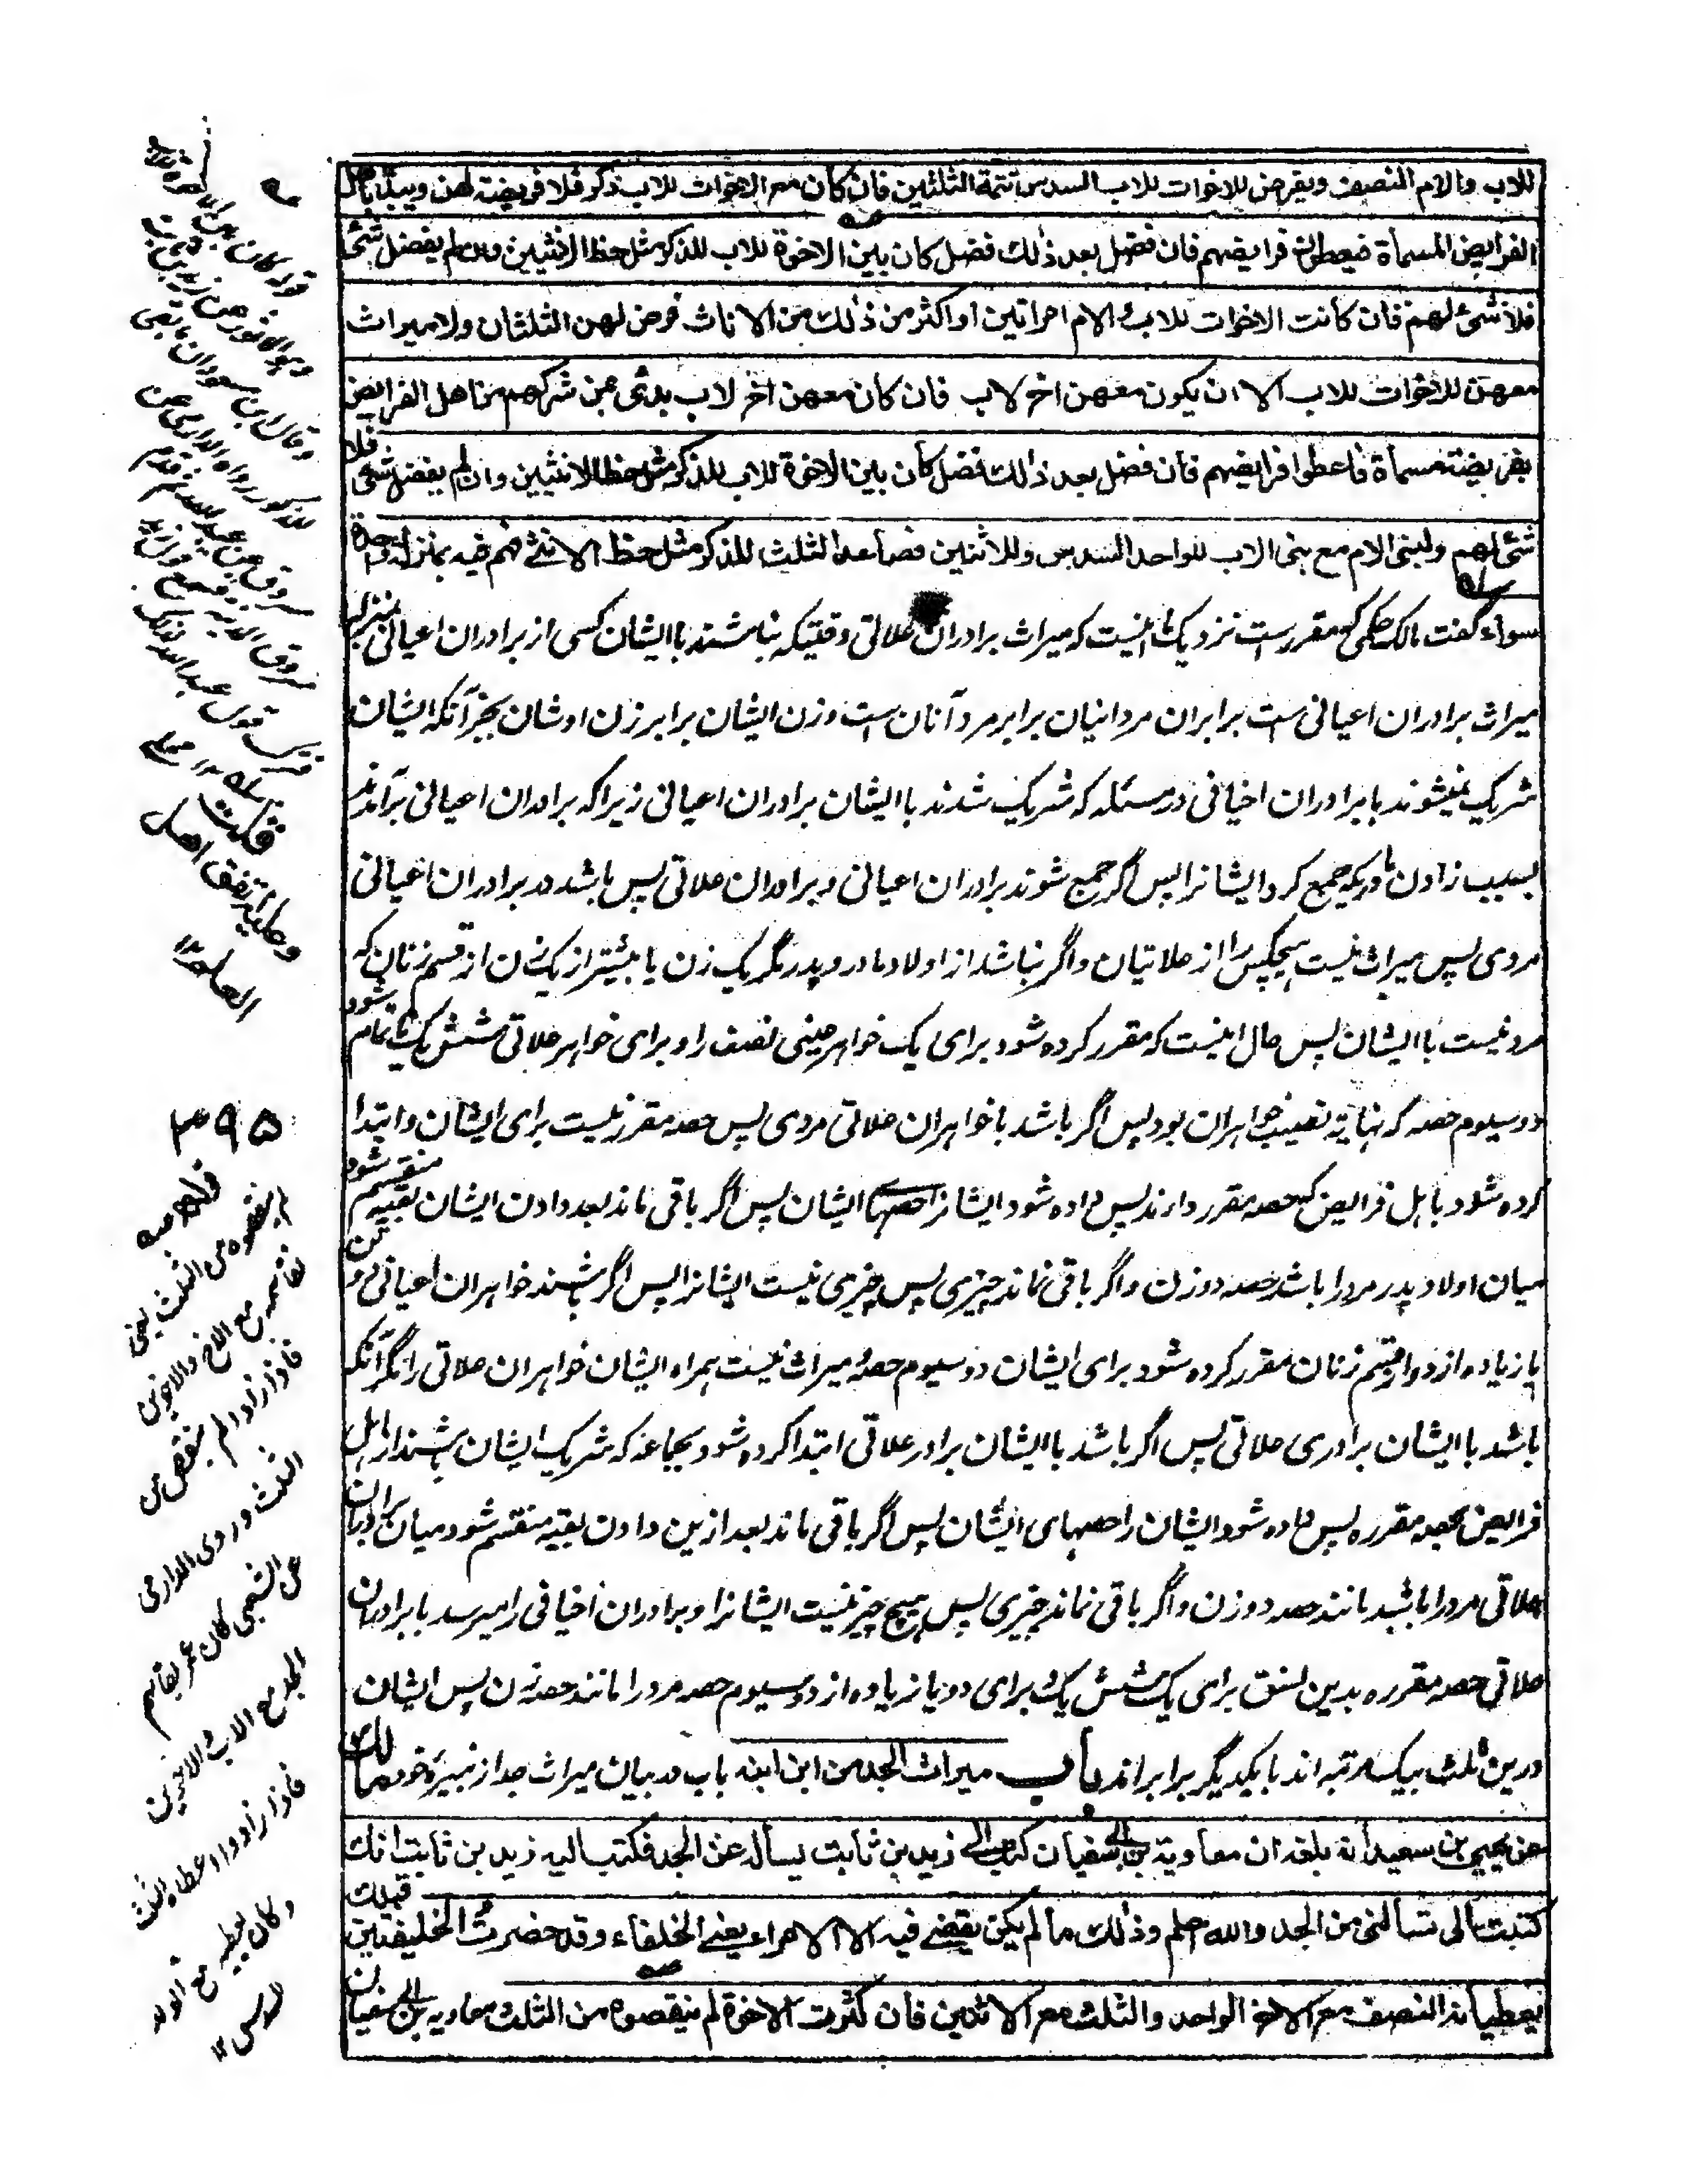 للاب والام النصف ويفرض للاخوات للاب السدس تتمة الثلثين فان كان مع الاخوات للاب ذكر فلا فريضة لهن ويبدأ باهل
الفرايض المسماة فيعطون فرايضهم فان فضل بعد ذلك فضل كان بين الاخوة للاب للذكر مثل حظ الانثيين وان لم يفضل شئ
فلا شئ لهم فان كانت الاخوات للاب والام امراتين او اكثر من ذلك من الاناث فرض لهن الثلثان ولا ميراث
معهن للاخوات للاب الا ان يكون معهن اخ لاب فان كان معهن اخ لاب بدئ بمن شركهم من اهل الفرايض
بفريضة مسماة فاعطوا فرايضهم فان فضل بعد ذلك فضل كان بين الاخوة للاب للذكر مثل حظ الانثيين وان لم يفضل شئ فلا
شئ لهم ولبنى الام مع بنى الاب للواحد السدس وللاثنين فصاعدا الثلث للذكر مثل حظ الانثى هم فيه بمنزلة واحدة
سواء گفت مالك حكمى كه مقررست نزديك ما اينست كه ميراث برادران علاتى وقتيكه نباشند با ايشان كسى از برادران اعيانى بمنزله
ميراث برادران اعيانى ست برابر ان مرد اينان برابر مرد آنان است وزن ايشان برابر زن اوشان بجز آنكه ايشان
شريك نميشوند با برادران اخيافى در مسئله كه شريك شدند با ايشان برادران اعيانى زيراكه برادران اعيانى برآمدند
بسبب زادن مادريكه جمع كرد ايشانرا پس اگر جمع شوند برادران اعيانى و برادران علاتى پس باشد در برادران اعيانى
مردى پس ميراث نيست هيچكس را از علاتيان واگر نباشد از اولاد مادر و پدر مگر يك زن يا بيشتر از يك زن از قسم زنان كه
مرد نيست با ايشان پس حال اينست كه مقرر كرده شود براى يك خواهر عينى نصف را و براى خواهر علاتى شش يك تا تمام شود
دو سيوم حصه كه نهايه نصيب خواهران بود پس اگر باشد با خواهران علاتى مردى پس حصه مقرر نيست براى ايشان و ابتدا
كرده شود باهل فرايض كه حصه مقرر دارند پس داده شود ايشانرا حصهاى ايشان پس اگر باقى ماند بعد دادن ايشان بقيه منقسم شود
ميان اولاد پدر مرد را باشد حصه دو زن واگر باقى نماند چيزى پس چيزى نيست ايشانرا پس اگر باشند خواهران اعيانى دو تن
يا زياده از دو از قسم زنان مقرر كرده شود براى ايشان دو سيوم حصه و ميراث نيست همراه ايشان خواهران علاتى را مگر آنكه
باشد با ايشان برادرى علاتى پس اگر باشد با ايشان برادر علاتى ابتدا كرده شود بجماعه كه شريك ايشان باشند از اهل
فرايض بحصه مقرره پس داده شود ايشان را حصهاى ايشان پس اگر باقى ماند بعد ازين دادن بقيه منقسم شود ميان برادران
علاتى مرد را باشد مانند حصه دو زن واگر باقى نماند چيزى پس هيچ چيز نيست ايشانرا و برادران اخيافى را ميرسد با برادران
علاتى حصه مقرره بدين نسق براى يك شش يك و براى دو يا زياده از دو سيوم حصه مرد را مانند حصه زن پس ايشان
درين ثلث بيك مرتبه اند با يكديگر برابر اند باب ميراث الجد من ابن ابنه باب در بيان ميراث جد از نبيره خود مالك
عن يحيى بن سعيد انه بلغه ان معاوية بن ابى سفيان كتب الى زيد بن ثابت يسأله عن الجد فكتب اليه زيد بن ثابت انك
كتبت الى تسألنى من الجد والله اعلم وذلك مالم يكن يقضى فيه الا الامراء يعنى الخلفاء وقد حضرت الخليفتين قبلك
يعطيانه النصف مع الاخ الواحد والثلث مع الاثنين فان كثرت الاخوة لم ينقصوه من الثلث معاويه بن ابى سفيان
قلت
وعليه اتفق اهل
العلم ١٢
٣٩٥
قوله
لم ينقصوه من الثلث يعنى
تقاسمه مع الاخ والاخوين
فاذا زادوا لم ينقص من
الثلث وروى الدارمى
عن الشعبى كان عمر يقاسم
الجد مع الاخ والاخوين
فاذا زادوا اعطاه الثلث
وكان يعطيه مع الولد
السدس ١٢